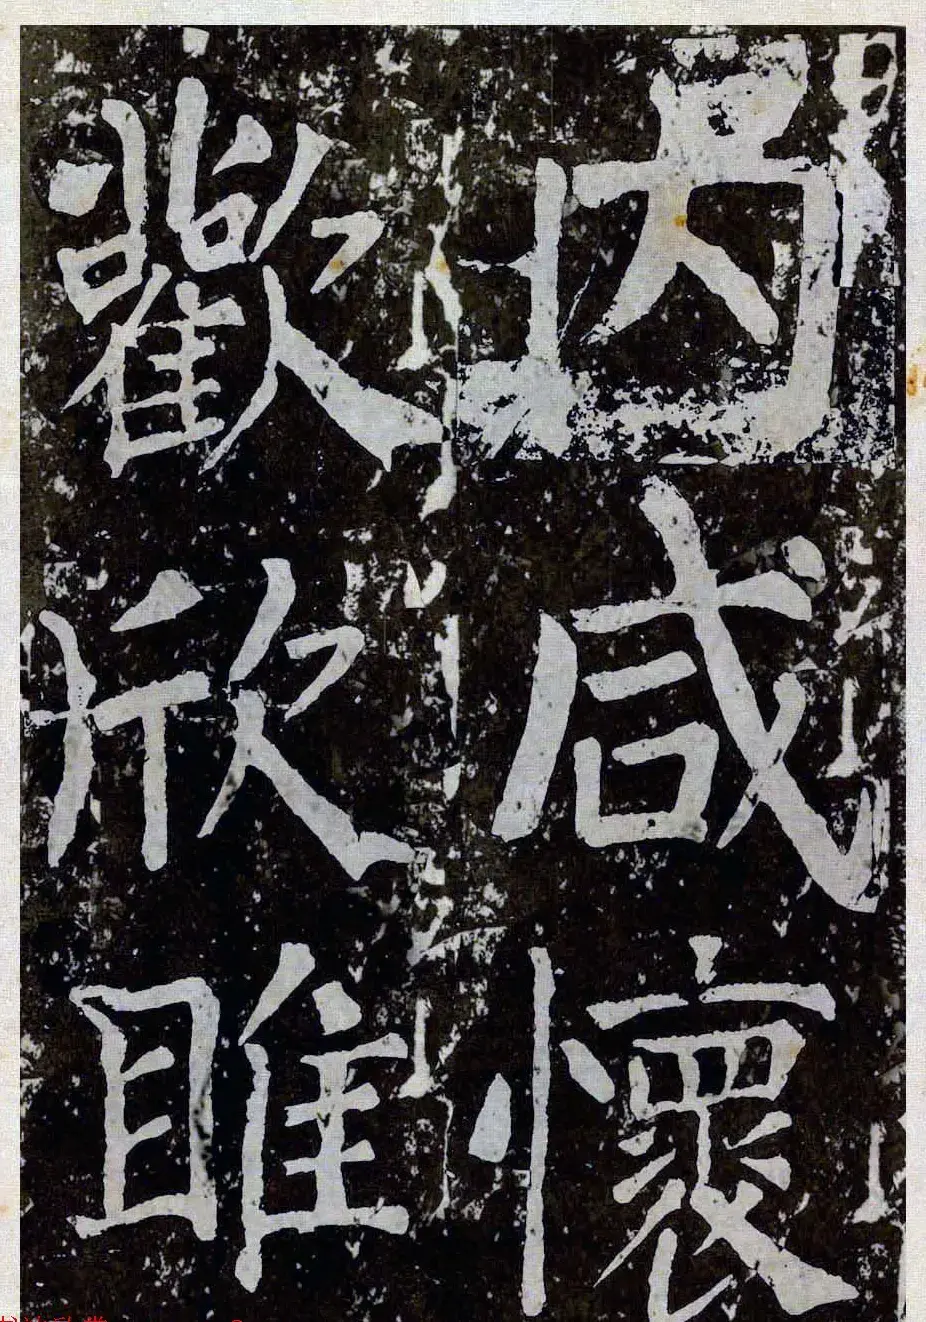 内咸懷
歡欣睢